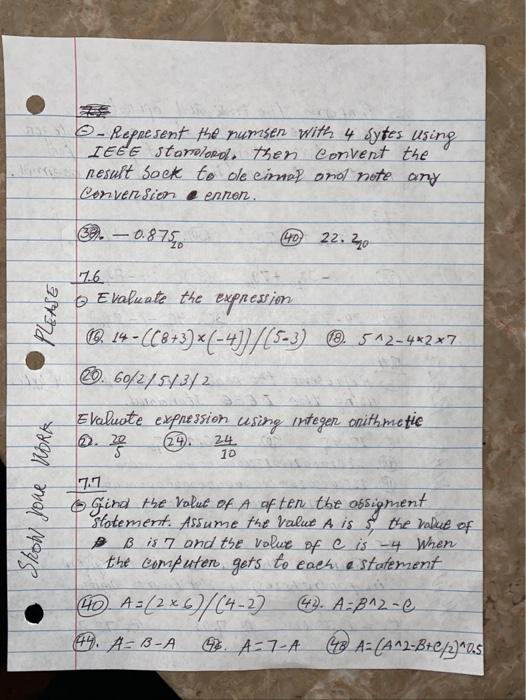 ⊙ - Represent the number with 4 bytes using
IEEE Standard. then convert the
result back to decimal and note any
Conversion error.
38. - 0.875₁₀ 40 22.2₁₀
7.6
⊙ Evaluate the expression
16. 14 - ((8+3)×(-4))/(5-3) 18. 5^2-4×2×7
20. 60/2/5/3/2
Evaluate expression using integer arithmetic
22. 20/5 24. 24/10
7.7
⊙ Gind the value of A after the assigment
Statement. Assume the value A is 5, the value of
B is 7 and the value of C is -4 When
the computer gets to each statement
40 A=(2×6)/(4-2) 42. A=B^2-C
44. A=B-A 46. A=7-A 48 A=(A^2-B+C/2)^0.5
Show your WORK PLEASE